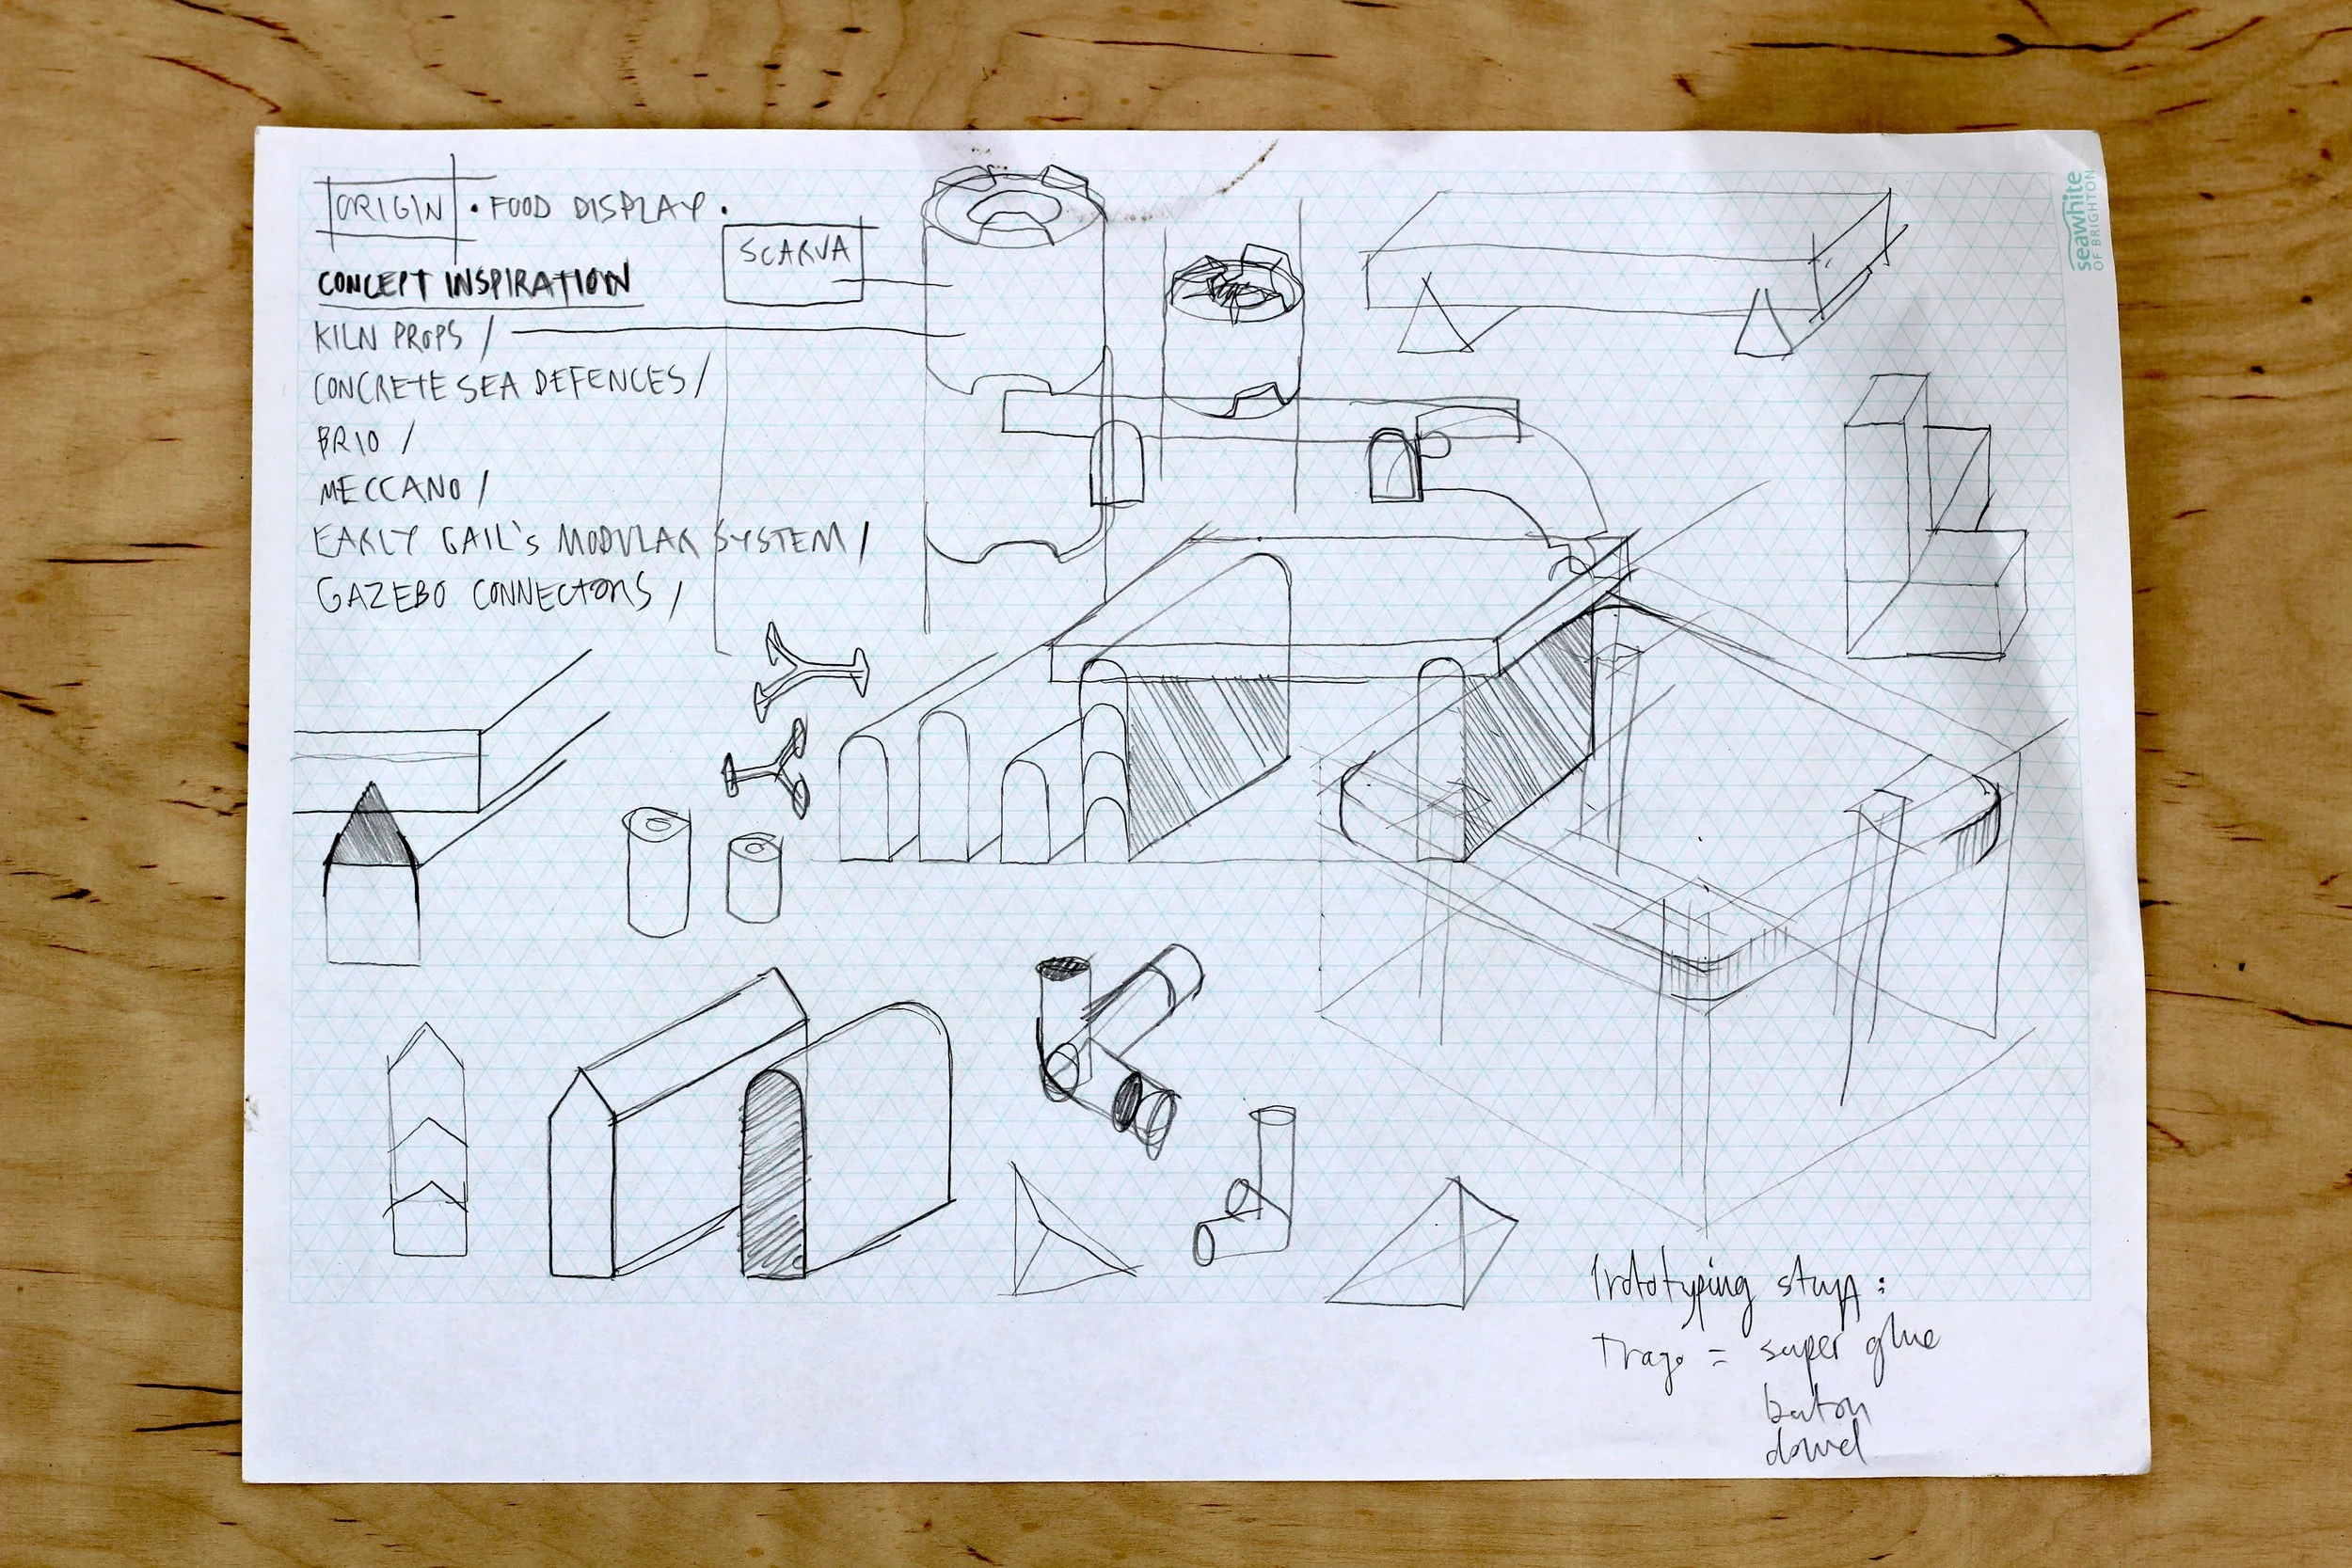 ORIGIN • FOOD DISPLAY •
SCARVA
CONCEPT INSPIRATION
KILN PROPS /
CONCRETE SEA DEFENCES /
BRIO /
MECCANO /
EARLY GAIL'S MODULAR SYSTEM /
GAZEBO CONNECTORS /
seawhite
OF BRIGHTON
Prototyping stuff:
Trago = super glue
baton
dowel